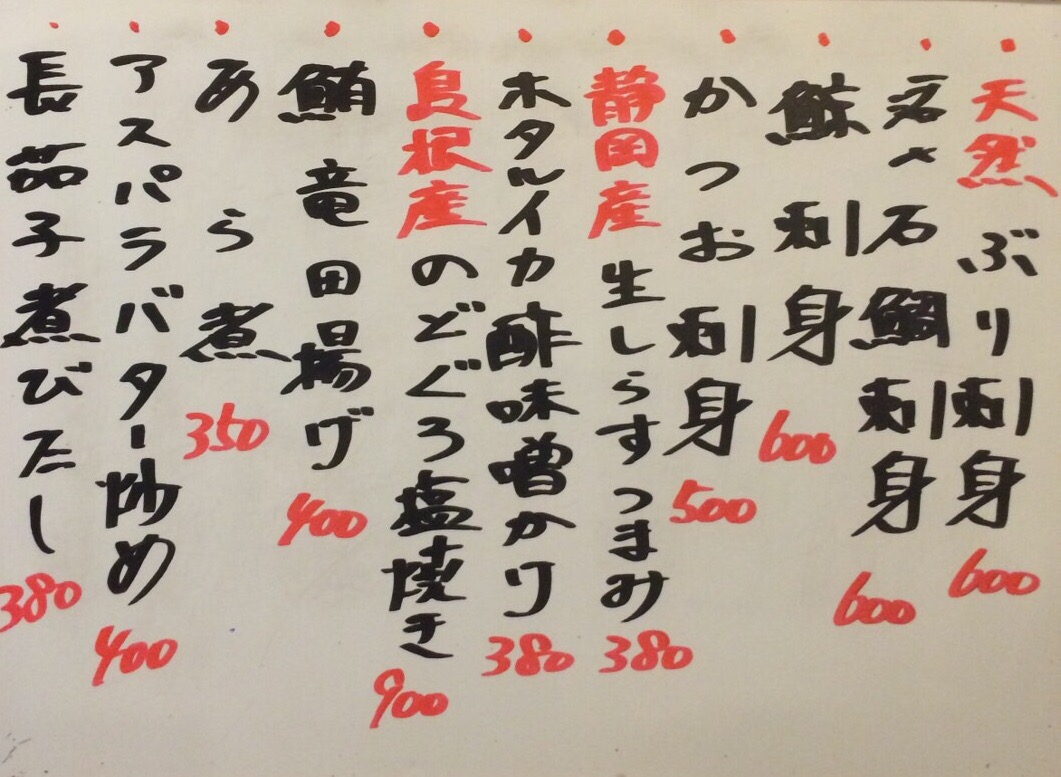 ・天然ぶり刺身 600
・石鯛刺身 600
・鯨刺身 600
・かつお刺身 500
・静岡産生しらすつまみ 380
・ホタルイカ酢味噌かけ 380
・島根産のどぐろ塩焼き 900
・鮪竜田揚げ 400
・あら煮 350
・アスパラバター炒め 400
・長茄子煮びたし 380